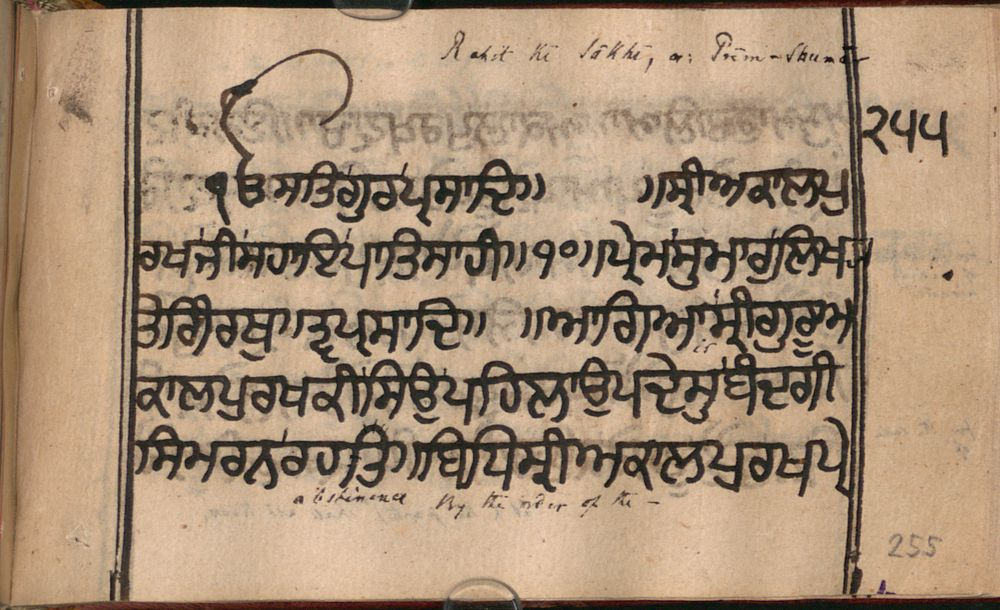 Rahit Ki Sākhī, or Prēm-Shumā
੨੫੫
੧ਓ ਸਤਿਗੁਰਪ੍ਰਸਾਦਿ॥ ॥ਸ੍ਰੀਅਕਾਲਪੁ
ਰਖਜੀਸਹਾਇਪਾਤਿਸਾਹੀ॥੧੦॥ਪ੍ਰੇਮਸੁਮਾਰਗੁਲਿਖ੍ਯ
ਤੇ ਪ੍ਰਸਾਦਿ॥ ॥ਆਗਿਆਸ੍ਰੀਗੁਰੂਅ
ਕਾਲਪੁਰਖਕੀਸਿਉਪਹਿਲਾਉਪਦੇਸੁਬੰਦਗੀ
ਸਿਮਰਨਰਹਤਿ॥ਬਿਧਿਸ੍ਰੀਅਕਾਲਪੁਰਖਪੇ
abstinence By the order of the -
255